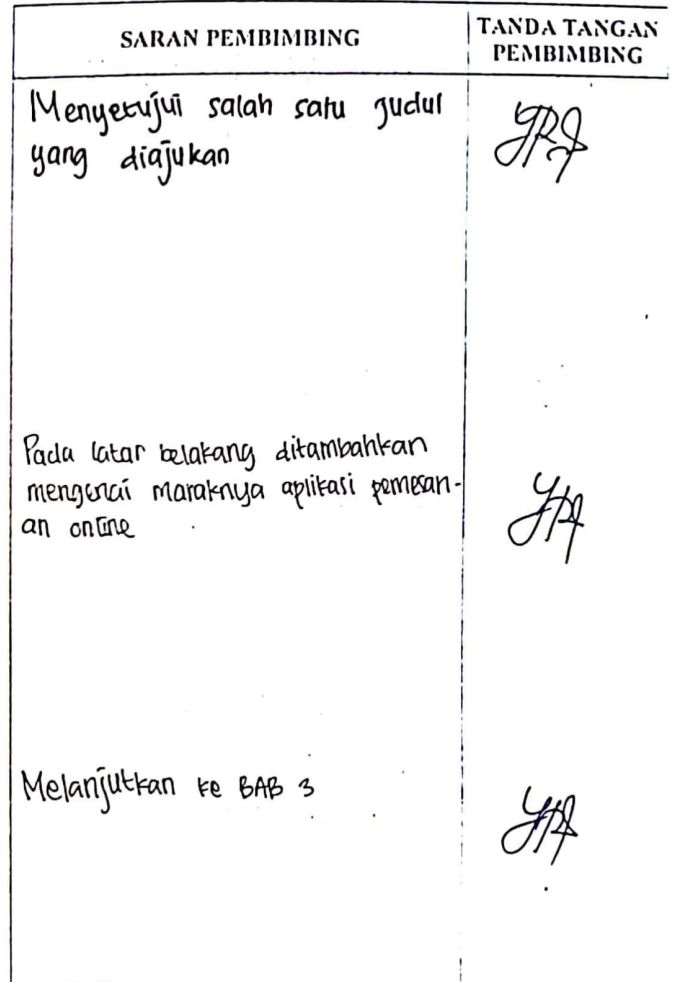 SARAN PEMBIMBING
TANDA TANGAN
PEMBIMBING
Menyetujui salah satu judul
yang diajukan
Pada latar belakang ditambahkan
mengenai maraknya aplikasi pemesan-
an online
Melanjutkan ke BAB 3